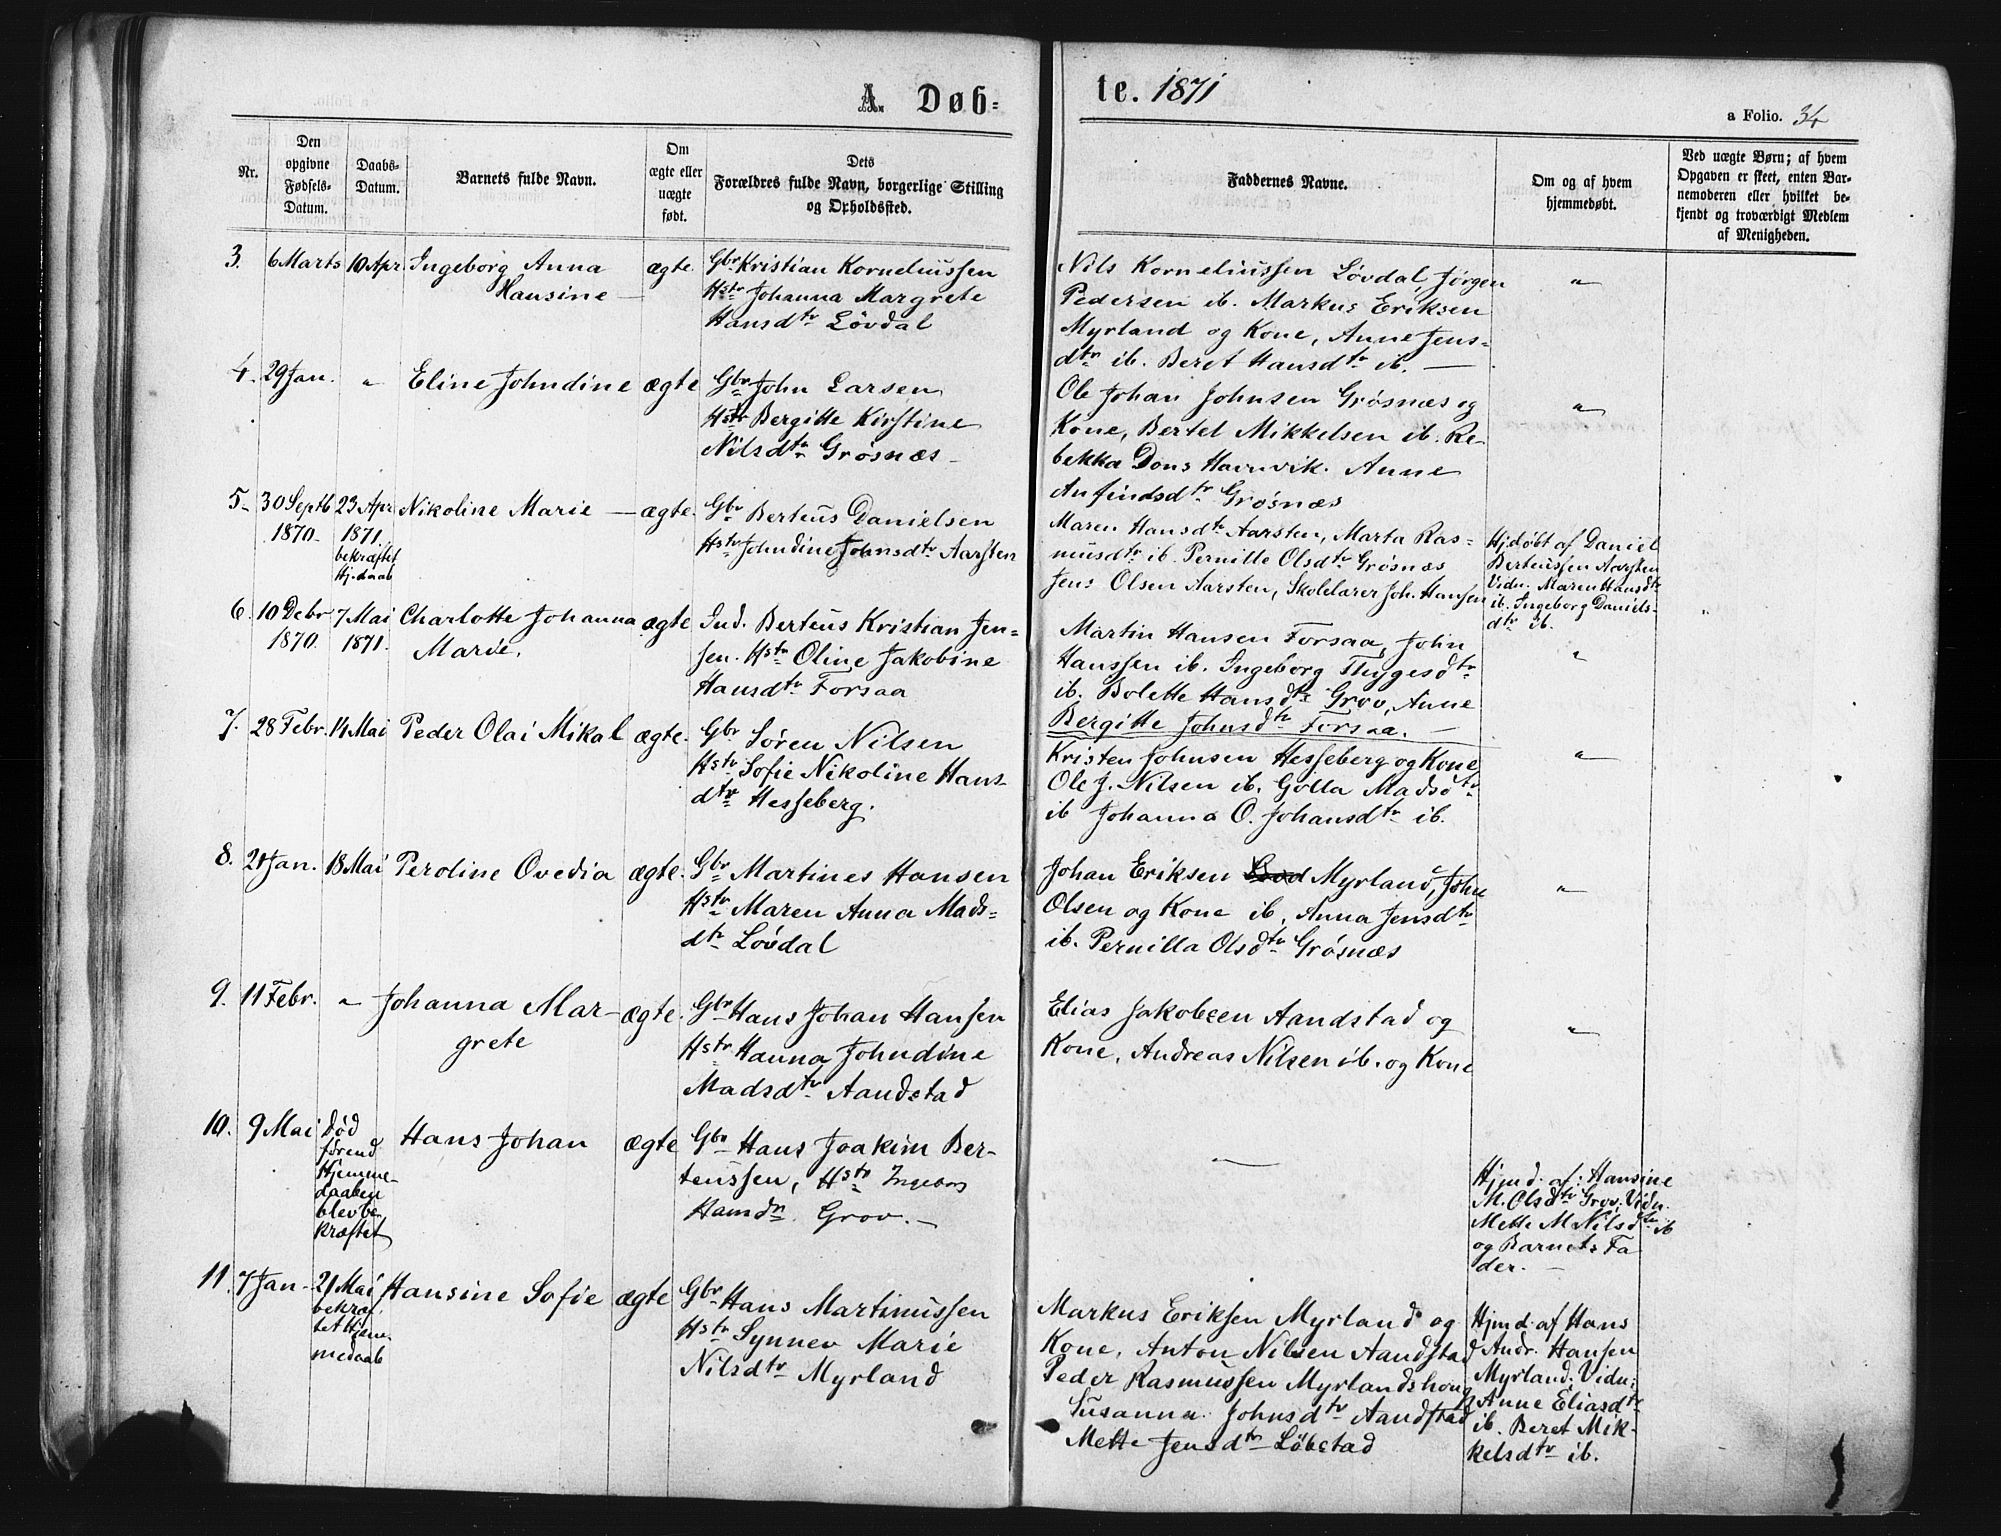 A. Døb=
te. 1871
a Folio. 34
Nr.
Den
opgivne
Fødsels-
Datum.
Daabs-
Datum.
Barnets fulde Navn.
Om
ægte eller
uægte
født.
Dets
Forældres fulde Navn, borgerlige Stilling
og Opholdssted.
Faddernes Navne.
Om og af hvem
hjemmedøbt.
Ved uægte Børn; af hvem
Opgaven er skeet, enten Bar-
nemoderen eller hvilket be-
kjendt og troværdigt Medlem
af Menigheden.
3. 6 Marts 10 Apr. Ingeborg Anna ægte Gbr Kristian Korneliussen
Hansine — Hstr Johanna Margrete
Hansdtr Løvdal
Nils Korneliussen Løvdal, Jørgen "
Pedersen ib. Markus Eriksen
Myrland og Kone, Anne Jens=
dtr ib. Beret Hansdtr ib. —
4. 29 Jan. " Eline Johndine ægte Gbr John Larsen
Hstr Bergitte Kirstine
Nilsdtr Grøsnæs —
Ole Johan Johnsen Grøsnæs og "
Kone, Bertel Mikkelsen ib. Re-
bekka Dons Havnvik. Anne
Anfindsdtr Grøsnæs
5. 30 Septb 23 Apr Nikoline Marie — ægte. Gbr Berteus Danielsen
1870. 1871. Hstr Johndine Johnsdtr Aarsten
bekræftet
Hj.daab
Maren Hansdtr Aarsten, Marta Ras=
musdtr ib. Pernille Olsdtr Grøsnæs
Jens Olsen Aarsten, Skolelærer Joh. Hansen
Hj.døbt af Daniel
Berteussen Aarsten
Vidn. Maren Hansdtr
ib. Ingeborg Daniels-
dtr ib.
6. 10 Debr 7 Mai Charlotte Johanna ægte Ind. Berteus Kristian Jen=
1870. 1871. Marie. sen. Hstr Oline Jakobine
Hansdtr Forsaa
Martin Hansen Forsaa, John "
Hanssen ib. Ingeborg Thygesdtr
ib. Bolette Hansdtr Grov, Anne
Bergitte Johnsdtr Forsaa. —
7. 28 Febr. 14 Mai Peder Olai Mikal ægte. Gbr Sören Nilsen
Hstr Sofie Nikoline Hans-
dtr Hesseberg.
Kristen Johnsen Hesseberg og Kone "
Ole J. Nilsen ib. Golla Madsdtr
ib Johanna O. Johansdtr ib.
8. 21 Jan. 18 Mai Peroline Ovedia ægte. Gbr Martines Hansen
Hstr Maren Anna Mads=
dtr Løvdal
Johan Eriksen Myrland, John "
Olsen og Kone ib, Anna Jensdtr
ib. Pernilla Olsdtr Grøsnæs
9. 11 Febr. " Johanna Mar- ægte. Gbr Hans Johan Hansen
grete Hstr Hanna Johndine
Madsdtr Aandstad
Elias Jakobsen Aandstad og "
Kone, Andreas Nilsen ib. og Kone
10. 9 Mai Død Hans Johan ægte Gbr Hans Joakim Ber-
førend teussen, Hstr Ingeborg
Hjemme- Hansdr. Grov. —
daaben
blev be
kræftet
—
Hjmd. af: Hansine
M. Olsdtr Grov; Vidn.
Mette M Nilsdtr ib
og Barnets Fa
der. —
11. 7 Jan — 21 Mai Hansine Sofie ægte Gbr Hans Martinussen
bekræf. Hstr Synnev Marie
tet Hjem Nilsdtr Myrland
medaab
Markus Eriksen Myrland og
Kone, Anton Nilsen Aandstad
Peder Rasmussen Myrlandshoug
Susanna Johnsdtr Aandstad
Mette Jensdtr Løbstad
Hjmd. af Hans
Andr. Hansen
Myrland. Vidn:
Anne Eliasdtr
ib. Beret Mik-
kelsdtr ib.